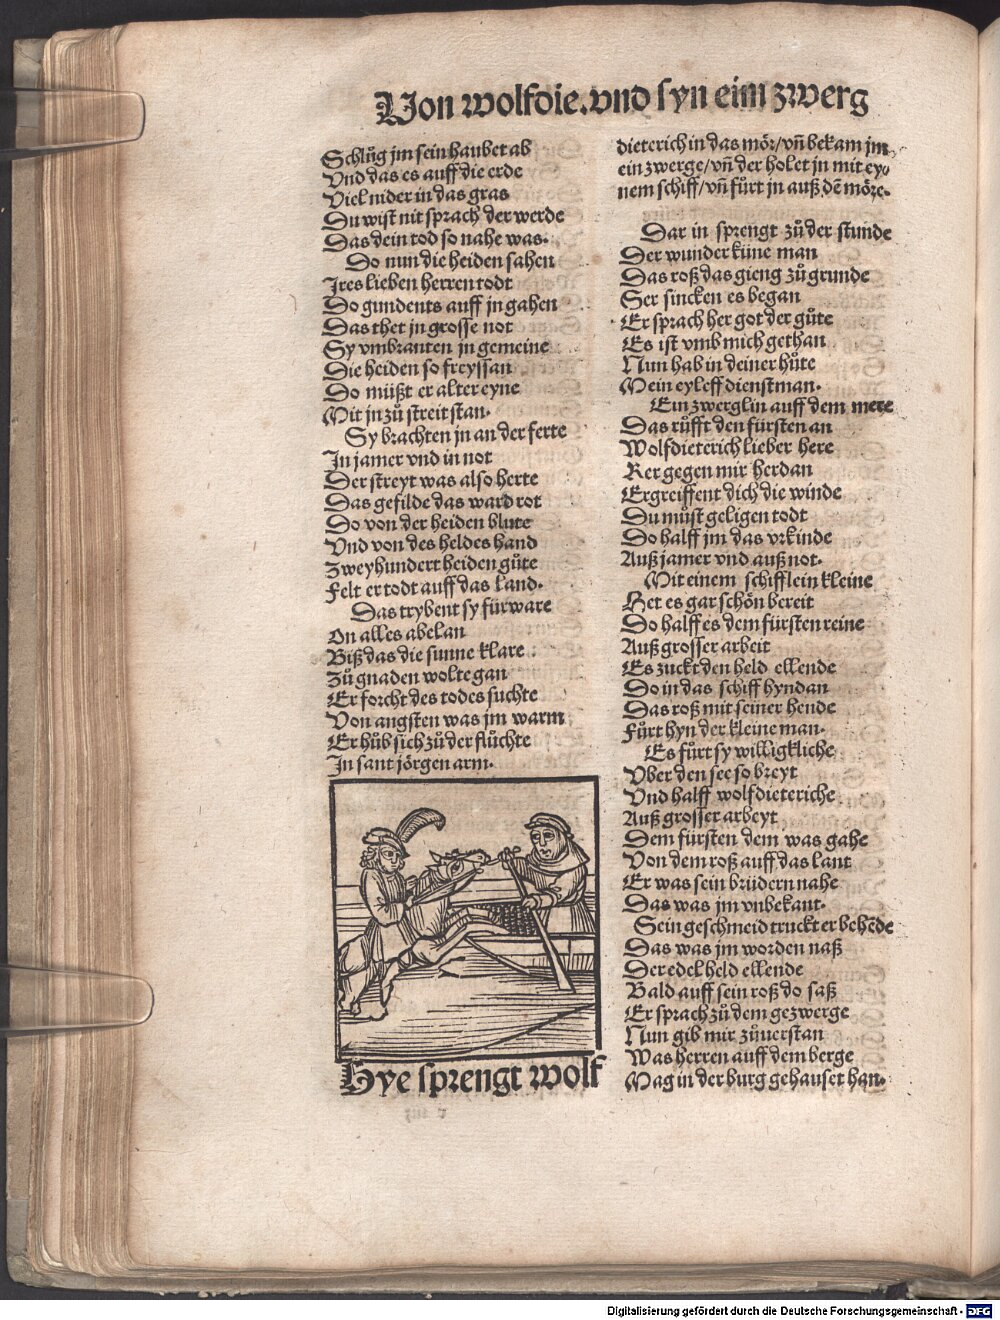 Von wolfdie. vnd syn eim zwerg
Schlůg jm sein haubet ab
Vnd das es auff die erde
Viel nider in das gras
Du wist nit sprach der werde
Das dein tod so nahe was.
Do nun die heiden sahen
Jres lieben herren todt
Do gundents auff jn gahen
Das thet jn grosse not
Sy vmbranten jn gemeine
Die heiden so freyssan
Do müßt er alter eyne
Mit jn zů streit stan.
Sy brachten jn an der ferte
Jn jamer vnd in not
Der streyt was also herte
Das gefilde das ward rot
Do von der heiden blute
Vnd von des heldes hand
Zweyhundert heiden gůte
Felt er todt auff das land.
Das trybent sy fürware
On alles abelan
Biß das die sunne klare
Zů gnaden wolte gan
Er forcht des todes suchte
Von angsten was jm warm
Er hůb sich zů der flüchte
Jn sant jörgen arm.
Hye sprengt wolf
dieterich in das mör/vñ bekam jm
ein zwerge/vñ der holet jn mit ey⸗
nem schiff/vñ fůrt jn auß dē möre.
Dar in sprengt zů der stunde
Der wunder küne man
Das roß das gieng zů grunde
Ser sincken es began
Er sprach her got der gůte
Es ist vmb mich gethan
Nun hab in deiner hůte
Mein eyleff dienstman.
Ein zwerglin auff dem mere
Das růfft den fürsten an
Wolfdieterich lieber here
Rer gegen mir herdan
Ergreiffent dich die winde
Du můst geligen todt
Do halff jm das vrkinde
Auß jamer vnd auß not.
Mit einem schifflein kleine
Het es gar schön bereit
Do halff es dem fürsten reine
Auß grosser arbeit
Es zuckt den held ellende
Do in das schiff hyndan
Das roß mit seiner hende
Fůrt hyn der kleine man.
Es fůrt sy willigkliche
Vber den see so breyt
Vnd halff wolfdieteriche
Auß grosser arbeyt
Dem fürsten dem was gahe
Von dem roß auff das lant
Er was sein brüdern nahe
Das was jm vnbekant.
Sein geschmeid truckt er behēde
Das was jm worden naß
Der edel held ellende
Bald auff sein roß do saß
Er sprach zů dem gezwerge
Nun gib mir zůuerstan
Was herren auff dem berge
Mag in der burg gehauset han.
Digitalisierung gefördert durch die Deutsche Forschungsgemeinschaft - DFG